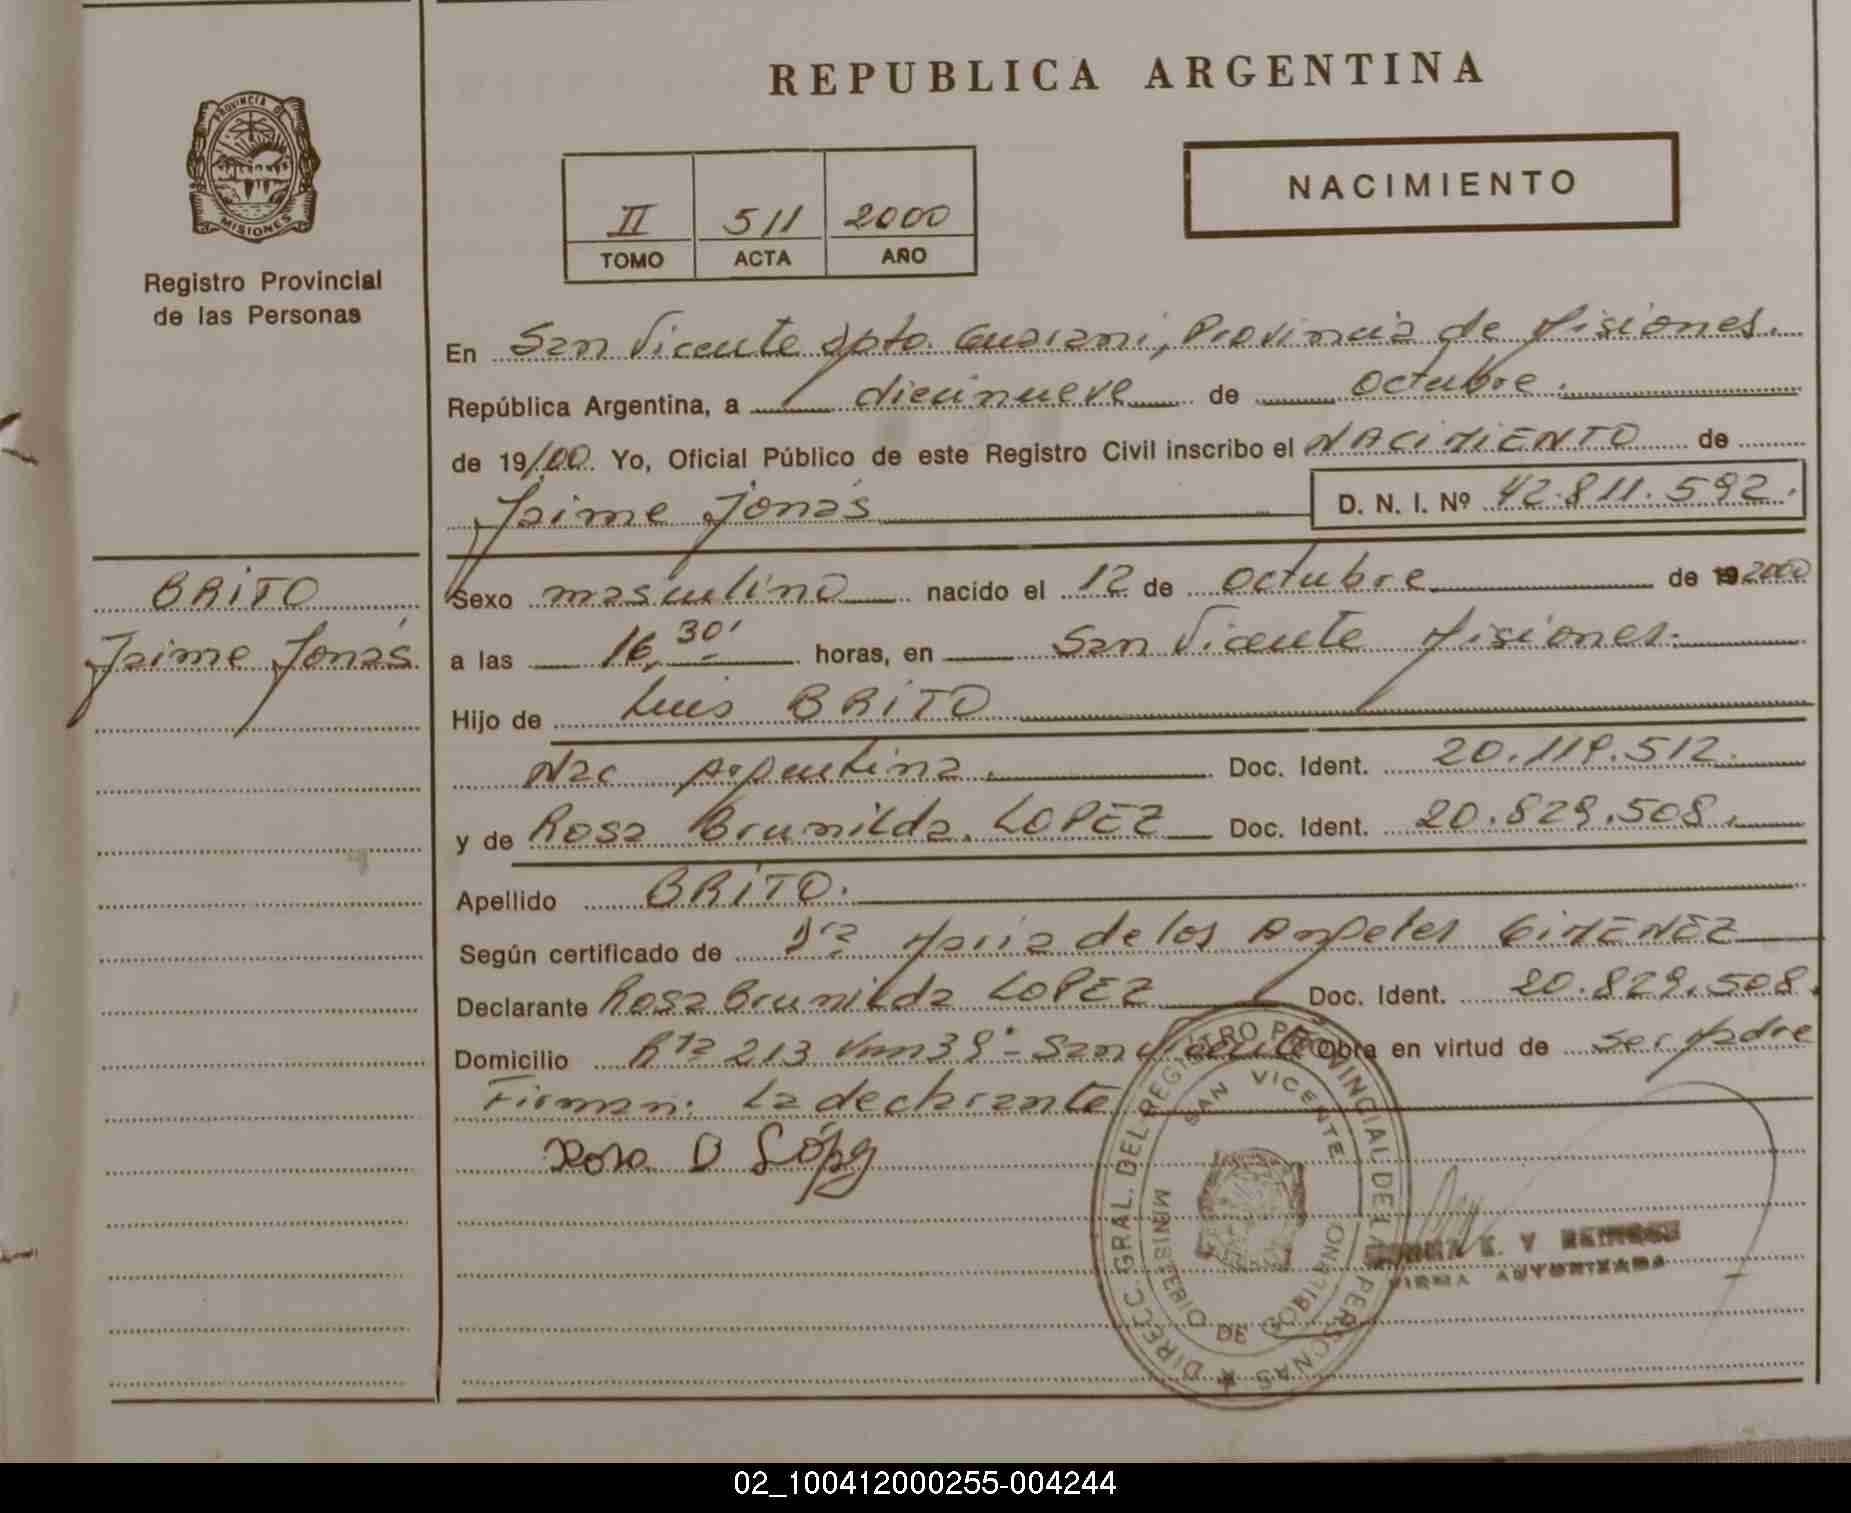 REPUBLICA ARGENTINA
PROVINCIA DE
MISIONES
Registro Provincial
de las Personas
II 511 2000
TOMO ACTA AÑO
NACIMIENTO
En San Vicente Dpto. Guarani, Provincia de Misiones.
República Argentina, a diecinueve de octubre.
de 19/00. Yo, Oficial Público de este Registro Civil inscribo el NACIMIENTO de
Jaime Jonás D. N. I. Nº 42.811.592.
BRITO
Jaime Jonás.
Sexo masculino nacido el 12 de octubre de 19 2000
a las 16,30' horas, en San Vicente Misiones.
Hijo de Luis BRITO
Nac Argentina. Doc. Ident. 20.119.512.
y de Rosa Brunilda. LOPEZ Doc. Ident. 20.829.508.
Apellido BRITO.
Según certificado de Dra Maria de los Angeles GIMENEZ
Declarante Rosa Brunilda LOPEZ Doc. Ident. 20.829.508.
Domicilio Rta 213 km 38 - San Vicente Obra en virtud de ser Madre
Firman: La declarante
Rosa B López
DIRECC. GRAL. DEL REGISTRO PROVINCIAL DE LAS PERSONAS
SAN VICENTE
MINISTERIO DE GOBIERNO
FIRMA AUTORIZADA
02_100412000255-004244